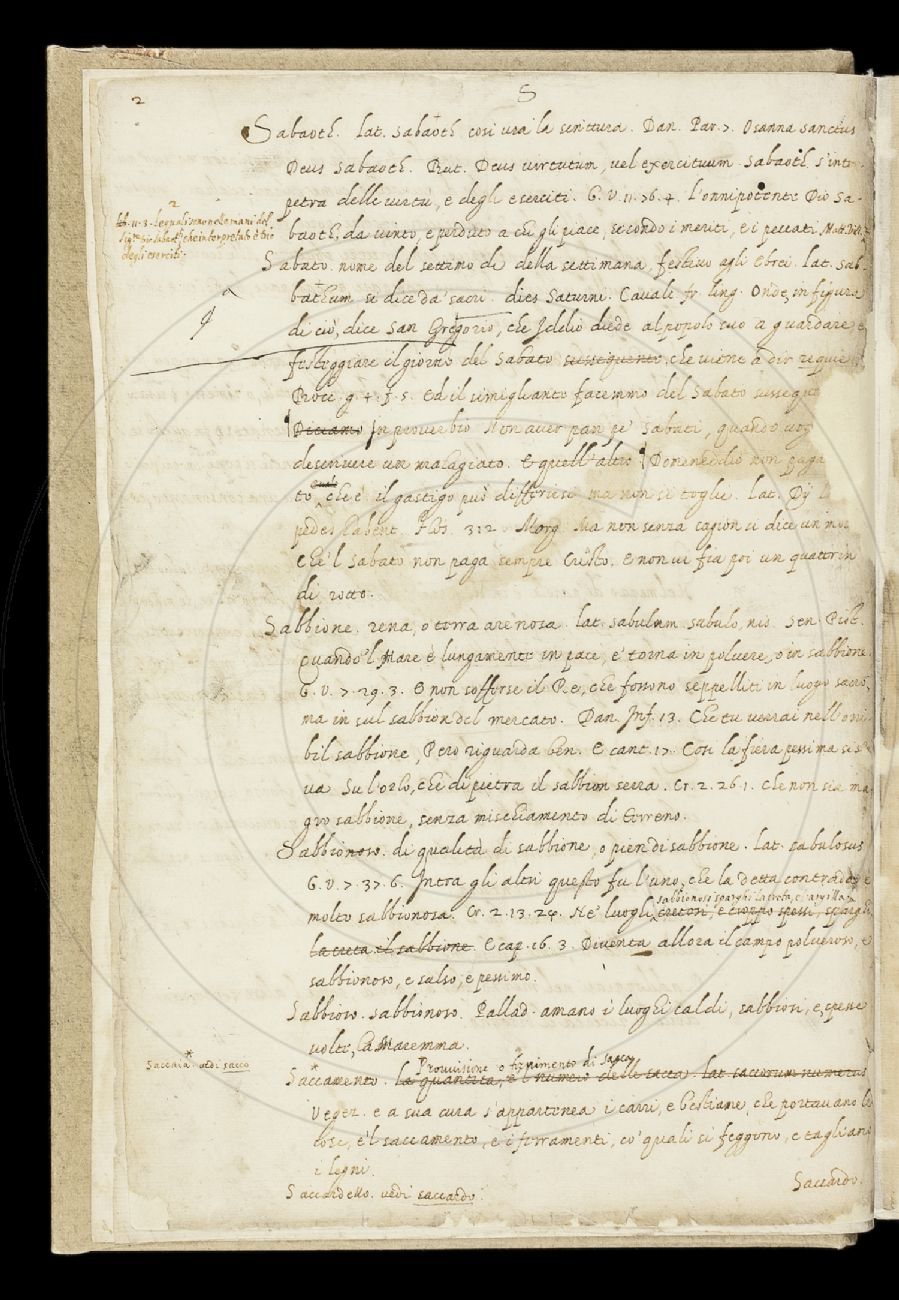 2
S
Sabaoth. lat. sabaoth così usa la scrittura. Dan. Par. 7. Osanna sanctus
Deus Sabaoth. But. Deus virtutum, vel exercituum. Sabaoth s'inter-
petra delle vertù, e degli eserciti. G. V. 11. 76. 4. L'onnipotente Dio Sa-
baoth, da vinto, e perduto a chi gli piace, secondo i meriti, e i peccati.
2
11. 3. le quali sono nelle mani del
Sig.re Dio Sabaoth, che interpretato è Dio
degli eserciti.
Sabato. nome del settimo dì della settimana, festivo agli Ebrei. lat. sab-
bathum si dice da' sacri. dies Saturni. Cavalc. fr. ling. Onde, in figura
di ciò, dice San Gregorio, che Iddio diede al popolo suo a guardare, e
festeggiare il giorno del Sabato susseguente, che viene a dir requie
g. 4. f. 5. Ed il simigliante facemmo del Sabato
Diciamo In proverbio Non aver pan pe' Sabati, quando
descrivere un malagiato. E quell'altro Domeneddio non paga
to, che è il gastigo può differirsi ma non si toglie. lat. Dij
pedes habent. Flos. 312. Morg. Ma non senza cagion si dice un
Che'l Sabato non paga sempre Cristo. E non vi fia poi un quattrin
di rotto.
Sabbione. rena, o terra arenosa. lat. sabulum sabulo, nis. Sen. Pist.
Quando'l Mare è lungamente in pace, e' torna in polvere, o in sabbione.
G. V. 7. 29. 3. E non sofferse il Re, che fossono seppelliti in luogo sacro,
ma in sul sabbion del mercato. Dan. Inf. 13. Che tu verrai nell'orri
bil sabbione, Però riguarda ben. E cant. 17. Così la fiera pessima si
va Su l'orlo, che di pietra il sabbion serra. Cr. 2. 26. 1. che non sia ma
gro sabbione, senza mischiamento di terreno.
Sabbionoso. di qualità di sabbione, o pien di sabbione. lat. sabulosus
G. V. 7. 37. 6. Intra gli altri questo fu l'uno, che la detta contrada è
sabbionosi sparghi la creta, e, argilla
molto sabbionosa. Cr. 2. 13. 24. Ne' luoghi cretosi, e troppo spessi, sparghi
la creta el sabbione. E cap. 16. 3. Diventa allora il campo polveroso, e
sabbionoso, e salso, e pessimo.
Sabbioso. sabbionoso. Pallad. amano i luoghi caldi, sabbiosi, e, spesse
volte, la Maremma.
Saccaia. vedi sacco
Provvisione o fornimento di sacca
Saccamento. la quantità, e'l numero delle sacca. lat. saccorum numerus
Vegez. e a sua cura s'appartenea i carri, e bestiame, che portavano le
cose, e'l saccamento, e i ferramenti, co' quali si feggono, e tagliano
i legni.
Saccardello. vedi saccardo.
Saccardo.